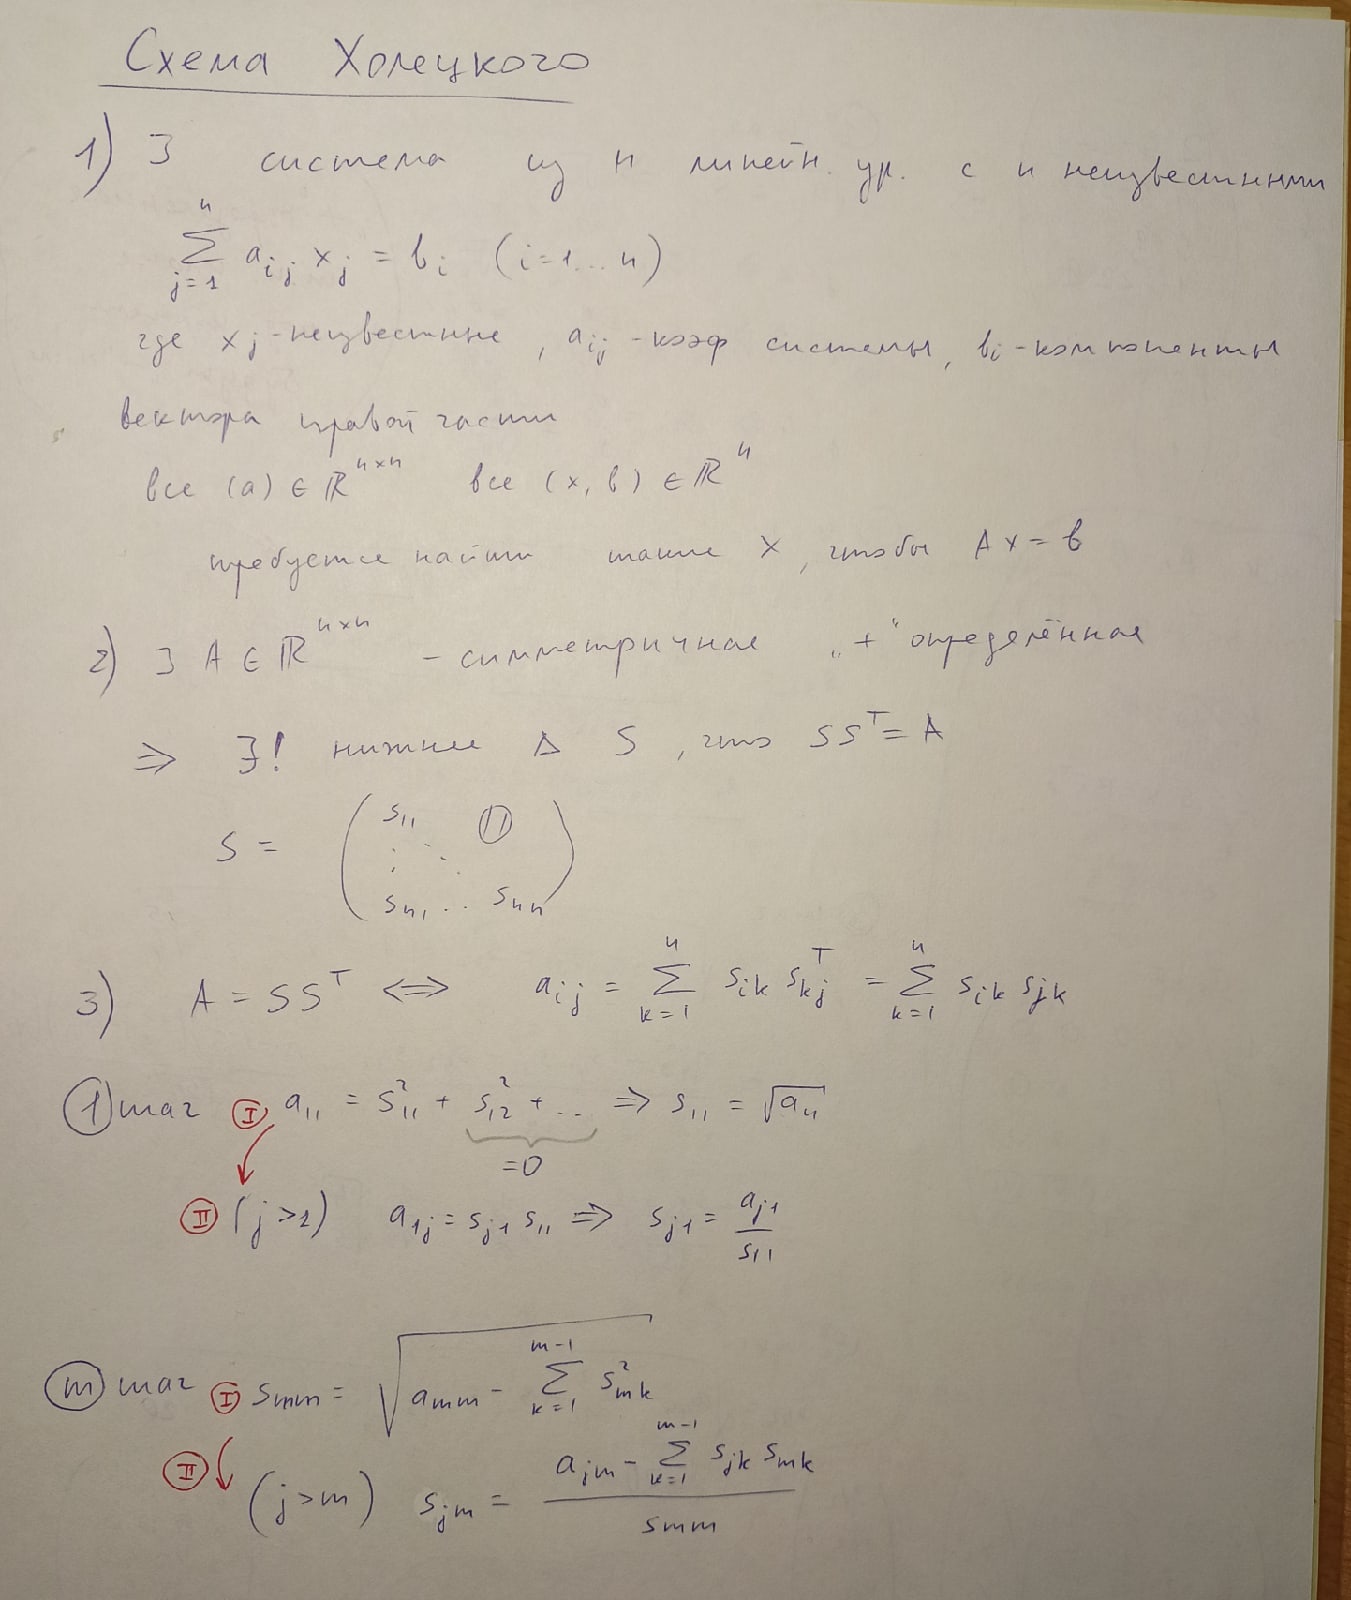 Схема Холецкого
1) ∃ система из n линейн. ур. с n неизвестными
∑_{j=1}^{n} a_{ij} x_j = b_i (i=1...n)
где x_j - неизвестные, a_{ij} - коэф системы, b_i - компоненты
вектора правой части
все (a) ∈ ℝ^{n×n} все (x, b) ∈ ℝ^n
требуется найти такие x, чтобы Ax = b
2) ∃ A ∈ ℝ^{n×n} - симметричная „+“ определённая
⇒ ∃! нижнее Δ S, что SS^T = A
S = ( s_{11} 0 ⋮ ⋱ s_{n1} ... s_{nn} )
3) A = SS^T ⇔ a_{ij} = ∑_{k=1}^{n} s_{ik} s_{kj}^T = ∑_{k=1}^{n} s_{ik} s_{jk}
① шаг Ⅰ a_{11} = s_{11}^2 + s_{12}^2 + ... ⇒ s_{11} = √a_{11}
=0
Ⅱ (j>1) a_{1j} = s_{j1} s_{11} ⇒ s_{j1} = a_{j1} / s_{11}
ⓜ шаг Ⅰ s_{mm} = √(a_{mm} - ∑_{k=1}^{m-1} s_{mk}^2)
Ⅱ (j>m) s_{jm} = (a_{jm} - ∑_{k=1}^{m-1} s_{jk} s_{mk}) / s_{mm}